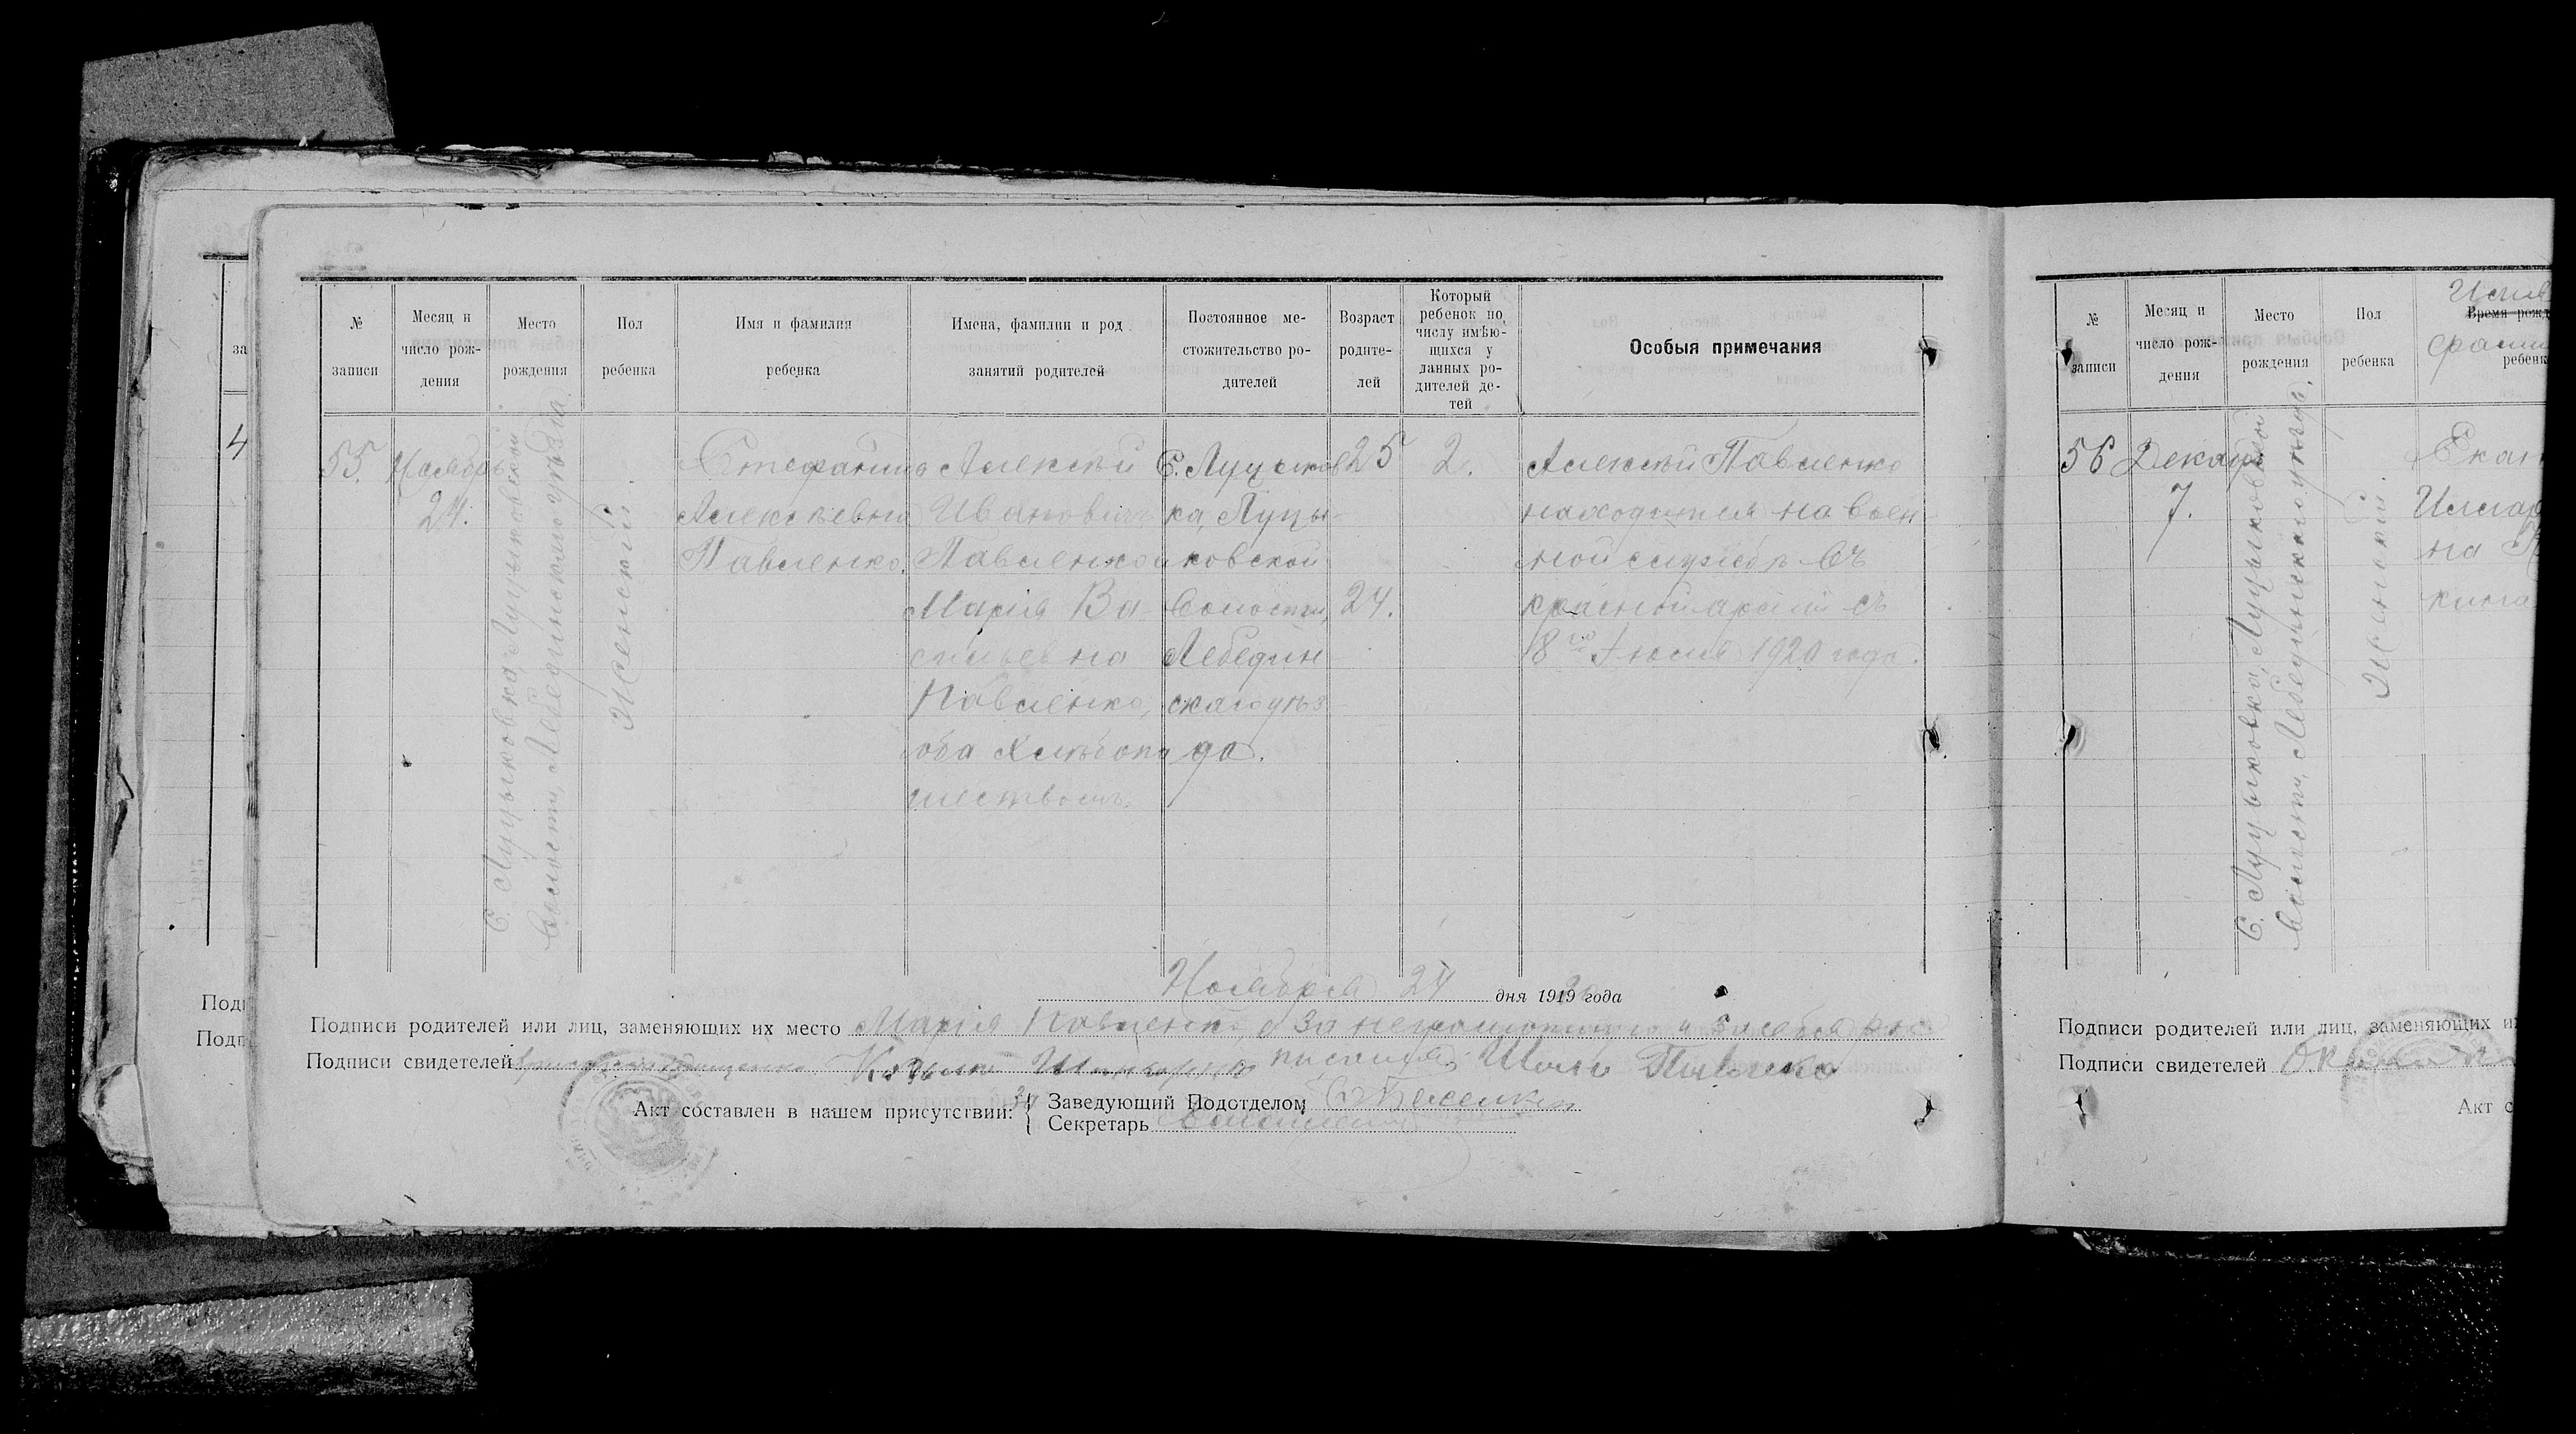 за
4
Подп
Подп
№ записи
Месяц и число рож-дения
Место рождения
Пол ребенка
Имя и фамилия ребенка
Имена, фамилии и род занятий родителей
Постоянное ме-стожительство ро-дителей
Возраст родите-лей
Который ребенок по числу имѣю-щихся у данных ро-дителей де-тей
Особыя примечания
55.
Ноябрь
24.
С. Луцыковка, Луцыковской
волости, Лебединского уѣзда.
Женский.
Стефанида
Алексѣевна
Павленко.
Алексѣй
Иванович
Павленко и
Мария Ва
сильевна
Павленко,
оба хлѣбопа
шествомъ.
С. Луцыков
ка, Луцы-
ковской
волости,
Лебедин
скаго уѣз-
да.
25
24.
2.
Алексѣй Павленко
находится на воен-
ной службѣ въ
красной армии съ
18го Июля 1920 года.
Ноября 24 дня 1919 года
Подписи родителей или лиц, заменяющих их место Мария Павленко, а за неграмотную и за себя рас
Подписи свидетелей писался Павленко
Акт составлен в нашем присутствии:
Заведующий Подотделом
Секретарь
№ записи
Месяц и число рож-дения
Место рождения
Пол ребенка
Время рожд
ребенк
56
Декабрь
7.
С. Луцыковка, Луцыковской
волости, Лебединскаго уѣзда.
Женский.
Екат
на
Подписи родителей или лиц, заменяющих и
Подписи свидетелей
Акт с